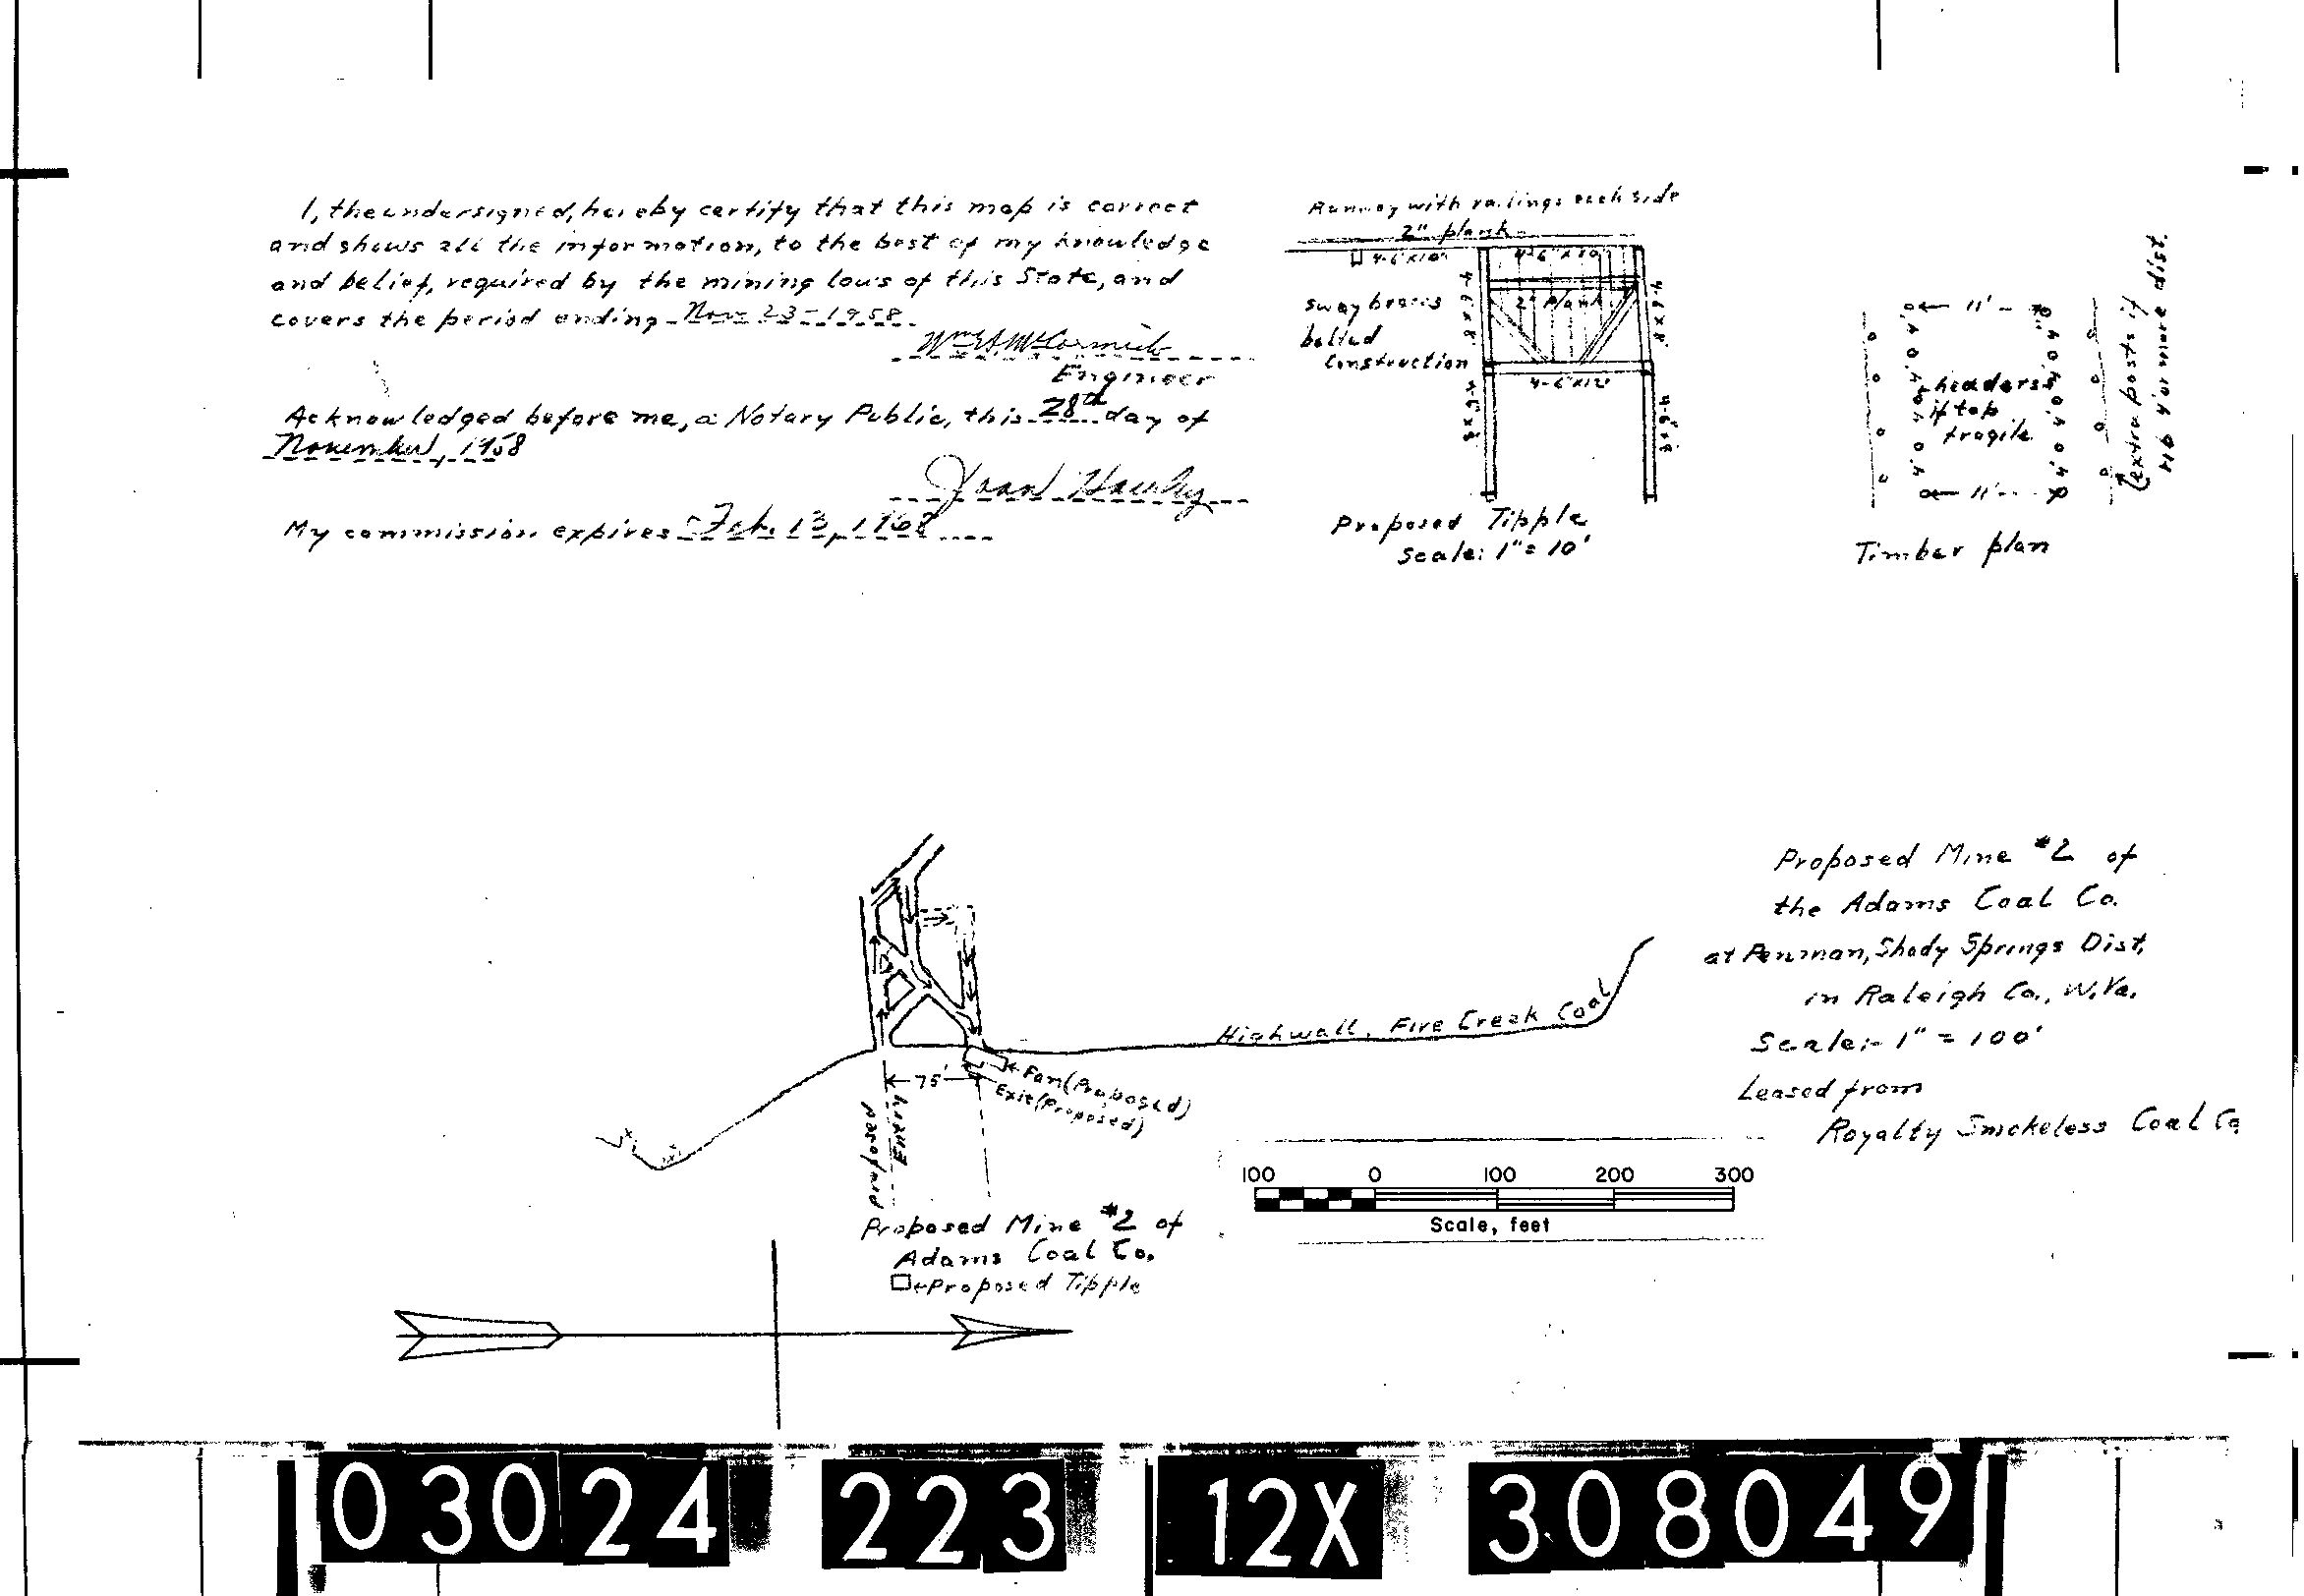 I, the undersigned, hereby certify that this map is correct
and shows all the information, to the best of my knowledge
and belief, required by the mining laws of this State, and
covers the period ending Nov 23-1958.
Wm McCormick
Engineer
Acknowledged before me, a Notary Public, this 28th day of
November, 1958
Joan Hawley
My commission expires Feb. 13, 1968
Runway with railings each side
2" plank
4-6"x10"
4-6"x10"
sway braces
bolted
construction
2" plank
4-6"x8"
4-6"x8"
4-6"x12"
4-6"x8"
4-6"x8"
Proposed Tipple
Scale: 1" = 10'
11'
headers
if top
fragile
11'
extra posts if
rib 4' or more dist.
Timber plan
Highwall, Fire Creek Coal
75'
Fan (Proposed)
Exit (Proposed)
Entry
proposed
Proposed Mine #2 of
Adams Coal Co.
Proposed Tipple
Proposed Mine #2 of
the Adams Coal Co.
at Penman, Shady Springs Dist,
in Raleigh Co., W.Va.
Scale:- 1" = 100'
Leased from
Royalty Smokeless Coal Co.
100 0 100 200 300
Scale, feet
03024 223 12X 308049